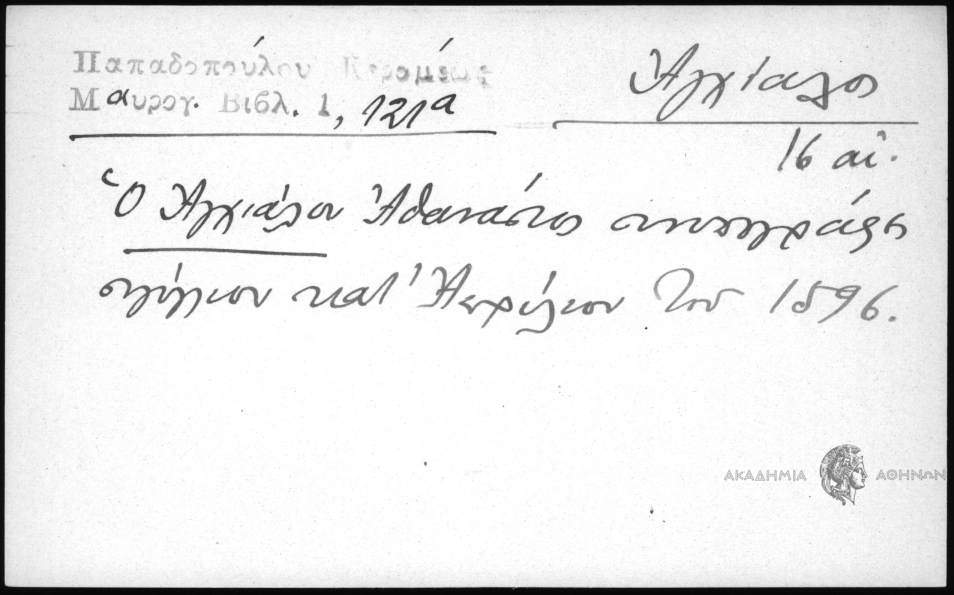 Παπαδοπούλου Κεραμέως
Μαυρογ. Βιβλ. 1, 121α
Ἀγχίαλος
16 αἰ.
Ὁ Ἀγχιάλου Ἀθανάσιος συνυπογράφει
σιγίλλιον κατ' Ἀπρίλιον τοῦ 1596.
ΑΚΑΔΗΜΙΑ ΑΘΗΝΩΝ